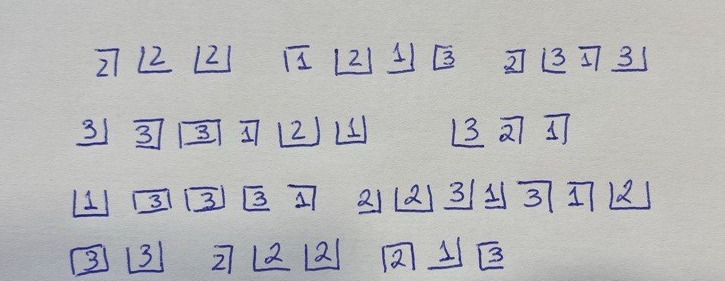 2 2 2   1 2 1 3   2 3 1 3
3 3 3 1 2 1   3 2 1
1 3 3 3 1   2 2 3 1 3 1 2
3 3   2 2 2   2 1 3